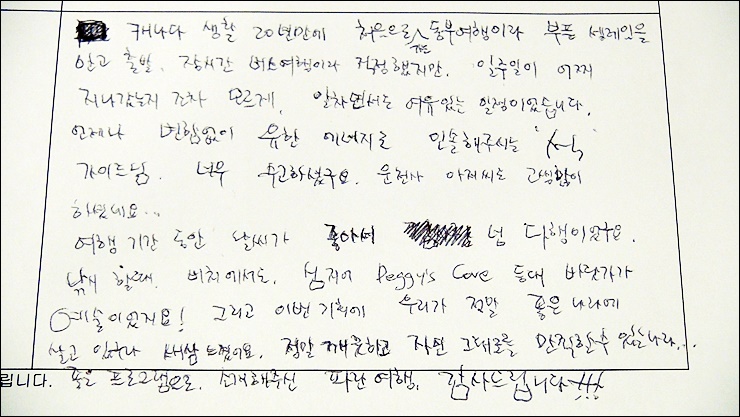 캐나다 생활 20년만에 처음으로 가는 동부여행이라 부푼 설레임을
안고 출발. 장시간 버스여행이라 걱정했지만. 일주일이 어찌
지나갔는지 조차 모르게, 알차면서도 여유있는 일정이었습니다.
언제나 변함없이 유한 에너지로 인솔해주시는
가이드님. 너무 수고하셨구요. 운전사 아저씨도 고생많이
하셨네요..
여행 기간 동안 날씨가 좋아서 넘 다행이었구요.
낚시 할때. 비치에서도. 심지어 Peggy's Cove 등대 바닷가가
예술이었지요! 그리고 이번 기회에 우리가 정말 좋은 나라에
살고 있구나 새삼 느꼈어요. 정말 깨끗하고 자연 그대로를 만끽할수 있는 나라...
립니다. 좋은 프로그램으로. 소개해주신 파란여행. 감사드립니다!!!